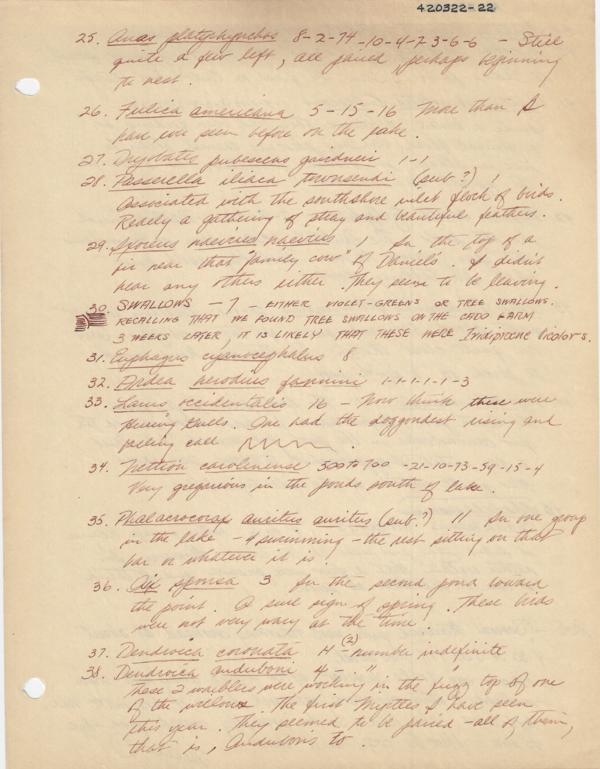 420322-22
25. Anas platyrhynchos 8-2-74-10-4-23-6-6 - Still
quite a few left, all paired, perhaps beginning
to nest.
26. Fulica americana 5-15-16 More than I
have ever seen before on the lake.
27. Dryobates pubescens gairdneri 1-1
28. Passerella iliaca townsendi (sub?) 1
Associated with the southshore inlet flock of birds.
Really a gathering of stray and beautiful feathers.
29. Ixoreus naevius naevius 1 In the top of a
fir near that "family cow" of Daniels. I didn't
hear any others either. They seem to be leaving.
30. SWALLOWS - 7 - EITHER VIOLET-GREENS OR TREE SWALLOWS.
RECALLING THAT WE FOUND TREE SWALLOWS ON THE FARM
3 WEEKS LATER, IT IS LIKELY THAT THESE WERE Iridiprocne bicolors.
31. Euphagus cyanocephalus 8
32. Ardea herodias fannini 1-1-1-1-1-3
33. Larus occidentalis 16 - Now think these were
Herring Gulls. One had the doggondest rising and
falling call
34. Nettion carolinense 500 to 700 -21-10-73-59-15-4
Very gregarious in the ponds south of lake.
35. Phalacrocorax auritus auritus (sub?) 11 In one group
in the lake - 4 swimming - the rest sitting on that
bar or whatever it is.
36. Aix sponsa 3 In the second pond toward
the point. A sure sign of spring. These birds
were not very wary at the time.
37. Dendroica coronata 4 (2) - number indefinite
38. Dendroica auduboni 4 - " "
These 2 warblers were working in the fuzzy top of one
of the willows. The first Myrtles I have seen
this year. They seemed to be paired - all of them,
that is, Audubon's to.